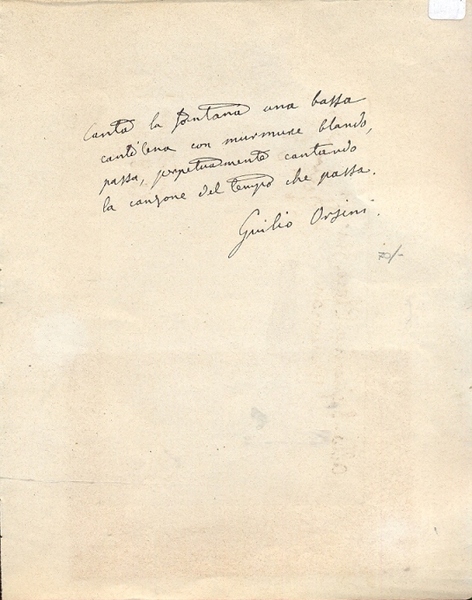 Canta la fontana una bassa
cantilena con murmure blando,
passa, perpetualmente cantando
la canzone del tempo che passa.
Giulio Orsini.